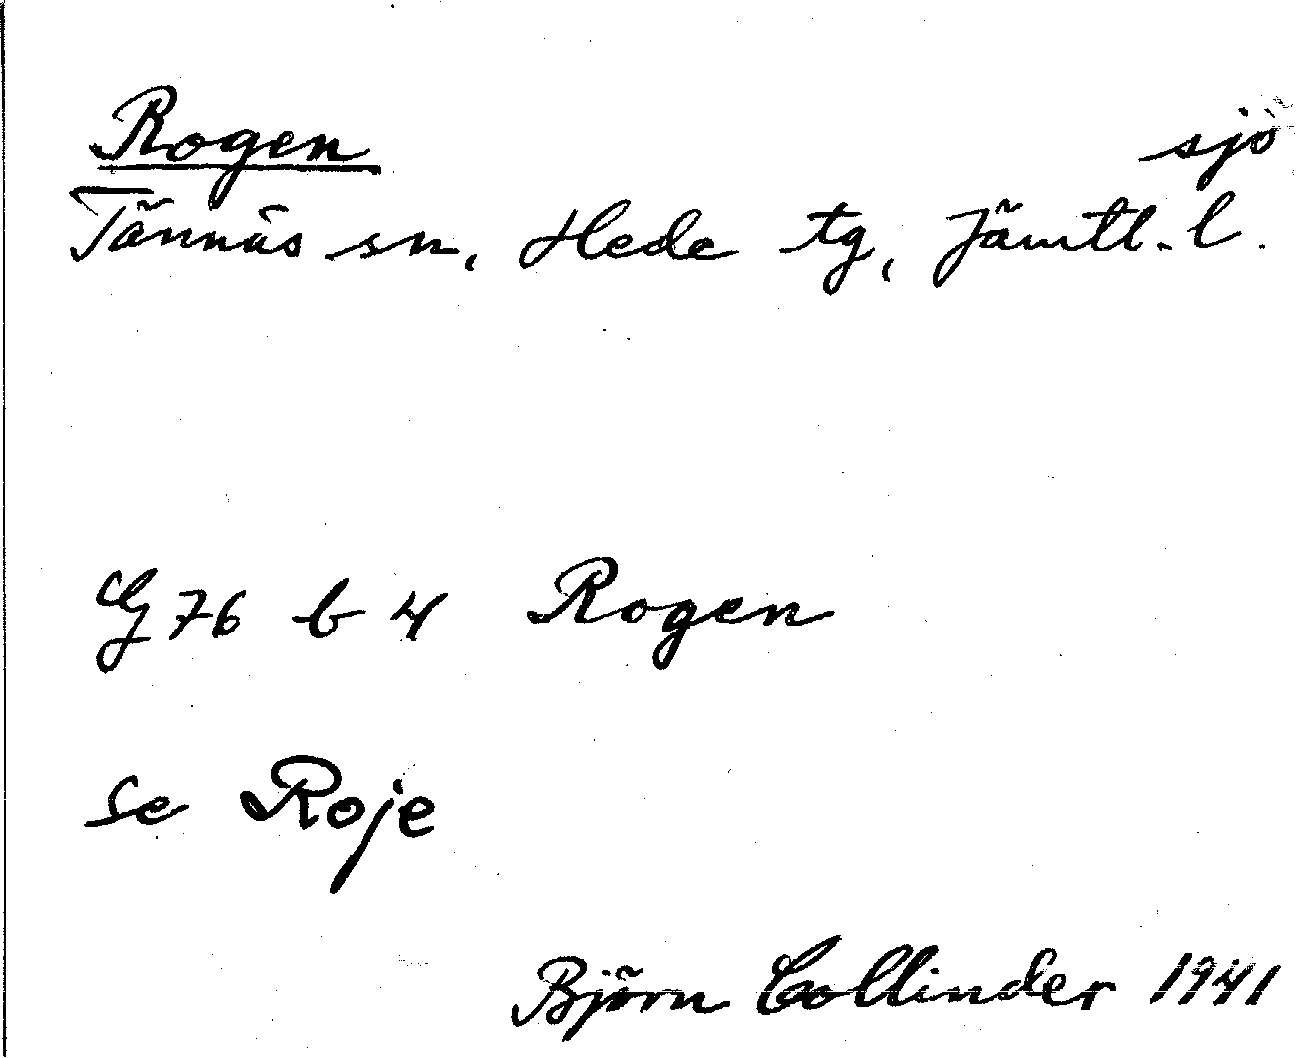 Rogen sjö
Tännäs sn, Hede tg, Jämtl. l.
G 76 b 4 Rogen
se Roje
Björn Collinder 1941